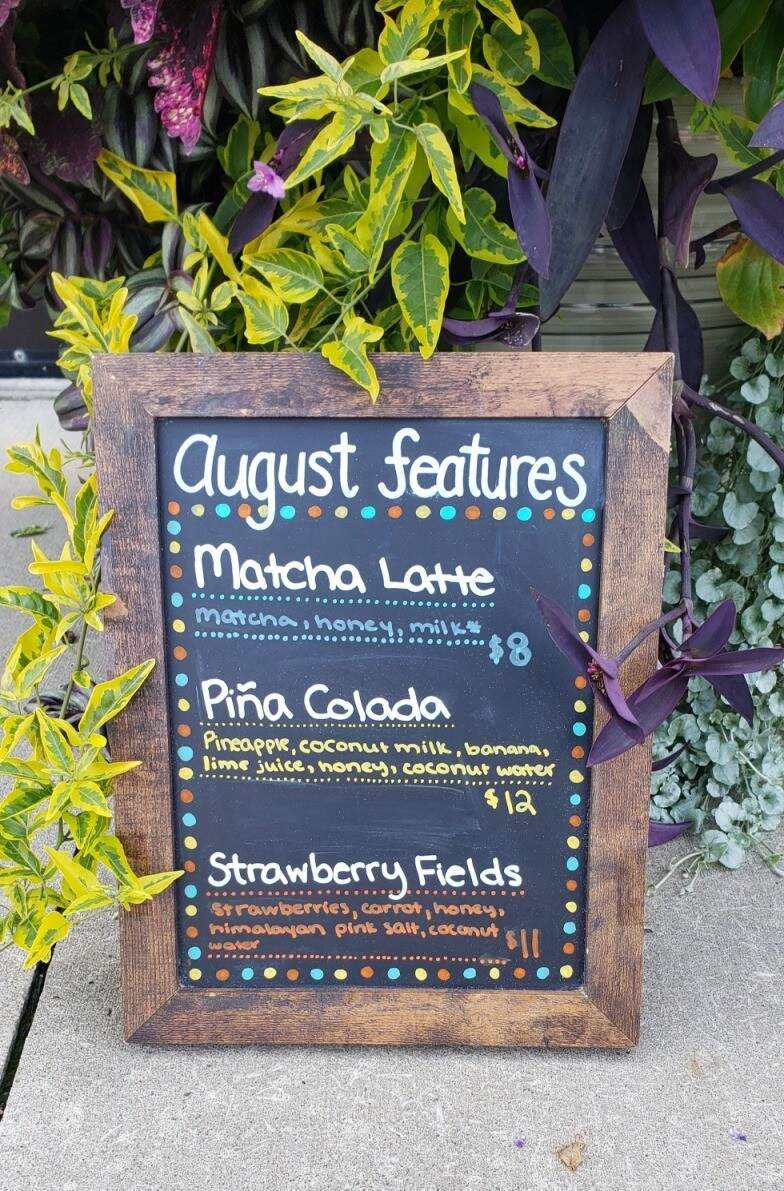 august features
Matcha Latte
matcha, honey, milk*
$8
Piña Colada
Pineapple, coconut milk, banana,
lime juice, honey, coconut water
$12
Strawberry Fields
strawberries, carrot, honey,
himalayan pink salt, coconut
water
$11